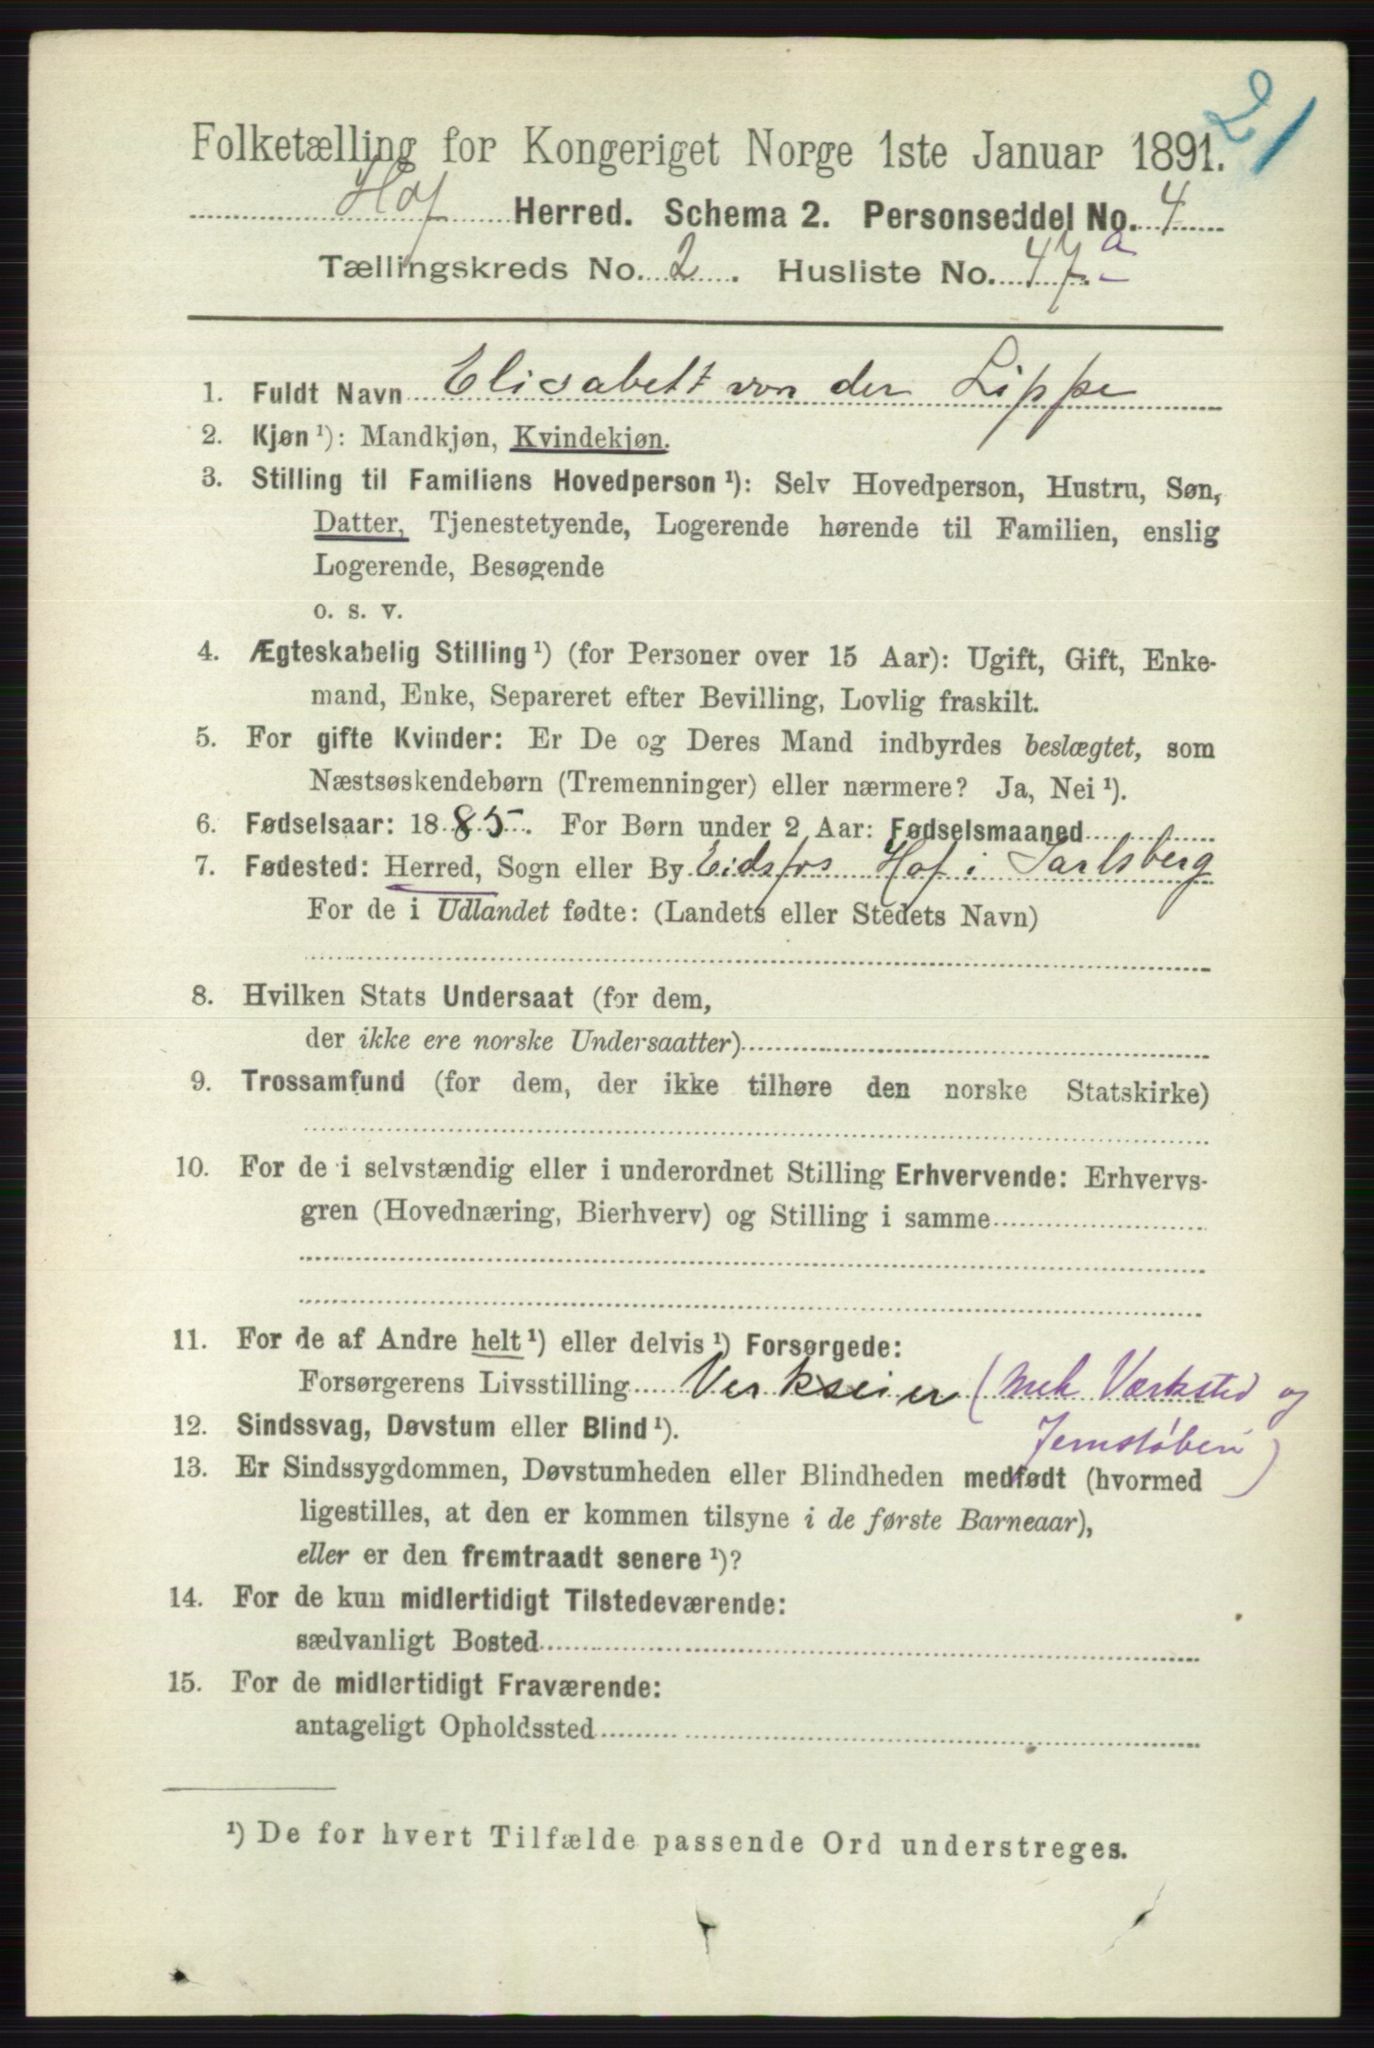 21
Folketælling for Kongeriget Norge 1ste Januar 1891.
Hof Herred. Schema 2. Personseddel No. 4
Tællingskreds No. 2. Husliste No. 47.a
1. Fuldt Navn Elisabett von der Lippe
2. Kjøn¹): Mandkjøn, Kvindekjøn.
3. Stilling til Familiens Hovedperson¹): Selv Hovedperson, Hustru, Søn,
Datter, Tjenestetyende, Logerende hørende til Familien, enslig
Logerende, Besøgende
o. s. v.
4. Ægteskabelig Stilling¹) (for Personer over 15 Aar): Ugift, Gift, Enke-
mand, Enke, Separeret efter Bevilling, Lovlig fraskilt.
5. For gifte Kvinder: Er De og Deres Mand indbyrdes beslægtet, som
Næstsøskendebørn (Tremenninger) eller nærmere? Ja, Nei¹).
6. Fødselsaar: 1885. For Børn under 2 Aar: Fødselsmaaned
7. Fødested: Herred, Sogn eller By Eidsfos Hof i Jarlsberg
For de i Udlandet fødte: (Landets eller Stedets Navn)
8. Hvilken Stats Undersaat (for dem,
der ikke ere norske Undersaatter)
9. Trossamfund (for dem, der ikke tilhøre den norske Statskirke)
10. For de i selvstændig eller i underordnet Stilling Erhvervende: Erhvervs-
gren (Hovednæring, Bierhverv) og Stilling i samme
11. For de af Andre helt¹) eller delvis¹) Forsørgede:
Forsørgerens Livsstilling Verkseier (Mek Værksted og
Jernstøberi)
12. Sindssvag, Døvstum eller Blind¹).
13. Er Sindssygdommen, Døvstumheden eller Blindheden medfødt (hvormed
ligestilles, at den er kommen tilsyne i de første Barneaar),
eller er den fremtraadt senere¹)?
14. For de kun midlertidigt Tilstedeværende:
sædvanligt Bosted
15. For de midlertidigt Fraværende:
antageligt Opholdssted
¹) De for hvert Tilfælde passende Ord understreges.